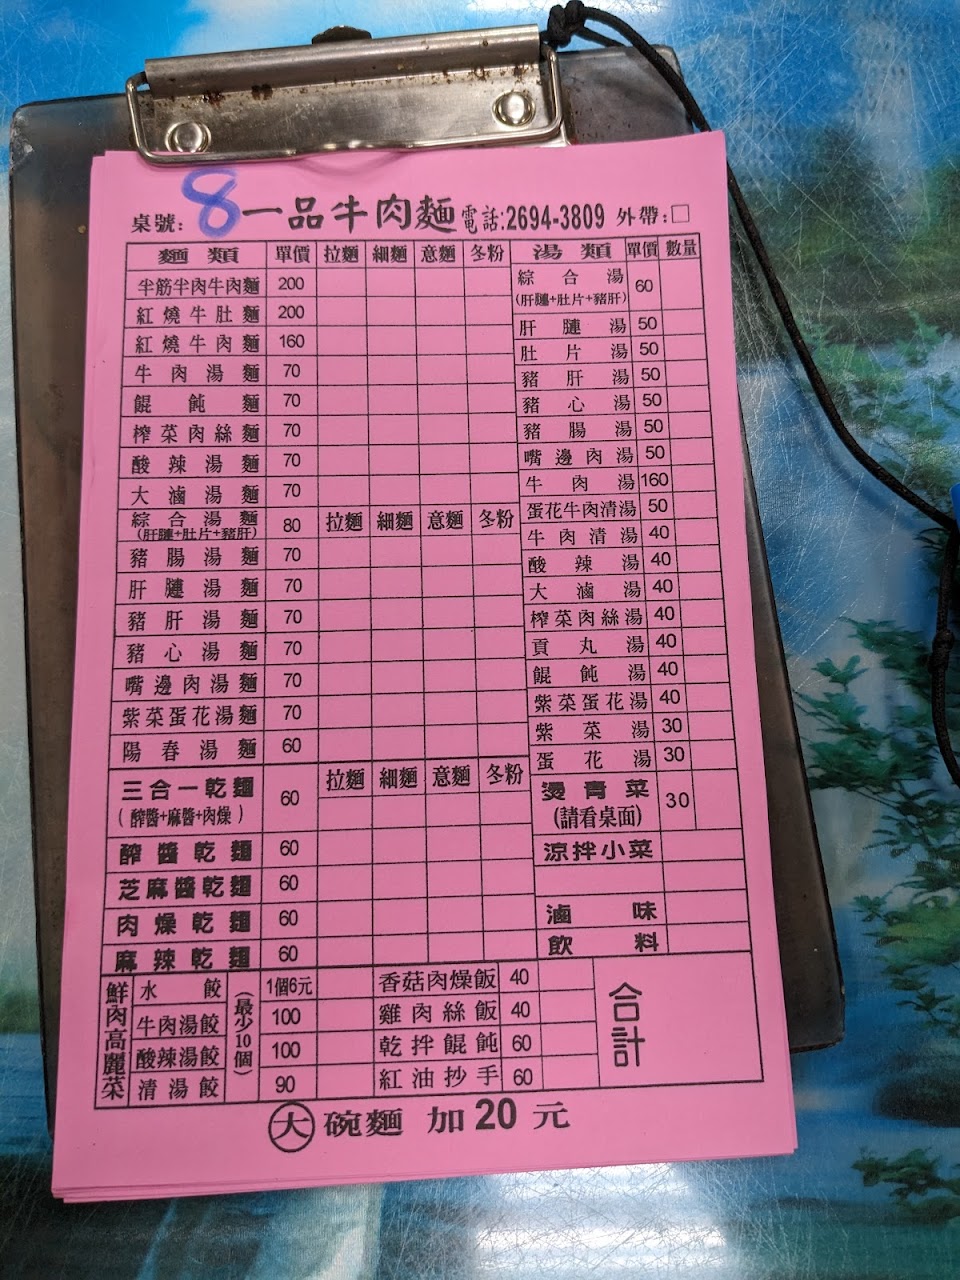 桌號: 8 一品牛肉麵 電話:2694-3809 外帶:□
麵類 單價 拉麵 細麵 意麵 冬粉
半筋半肉牛肉麵 200
紅燒牛肚麵 200
紅燒牛肉麵 160
牛肉湯麵 70
餛飩麵 70
榨菜肉絲麵 70
酸辣湯麵 70
大滷湯麵 70
綜合湯麵 80 拉麵 細麵 意麵 冬粉
(肝膁+肚片+豬肝)
豬腸湯麵 70
肝膁湯麵 70
豬肝湯麵 70
豬心湯麵 70
嘴邊肉湯麵 70
紫菜蛋花湯麵 70
陽春湯麵 60
三合一乾麵 60 拉麵 細麵 意麵 冬粉
(醡醬+麻醬+肉燥)
醡醬乾麵 60
芝麻醬乾麵 60
肉燥乾麵 60
麻辣乾麵 60
湯類 單價 數量
綜合湯 60
(肝膁+肚片+豬肝)
肝膁湯 50
肚片湯 50
豬肝湯 50
豬心湯 50
豬腸湯 50
嘴邊肉湯 50
牛肉湯 160
蛋花牛肉清湯 50
牛肉清湯 40
酸辣湯 40
大滷湯 40
榨菜肉絲湯 40
貢丸湯 40
餛飩湯 40
紫菜蛋花湯 40
紫菜湯 30
蛋花湯 30
燙青菜 30
(請看桌面)
涼拌小菜
滷味
飲料
鮮肉高麗菜
水餃 1個6元
牛肉湯餃 100
酸辣湯餃 100
清湯餃 90
(最少10個)
香菇肉燥飯 40
雞肉絲飯 40
乾拌餛飩 60
紅油抄手 60
合計
大碗麵 加20元